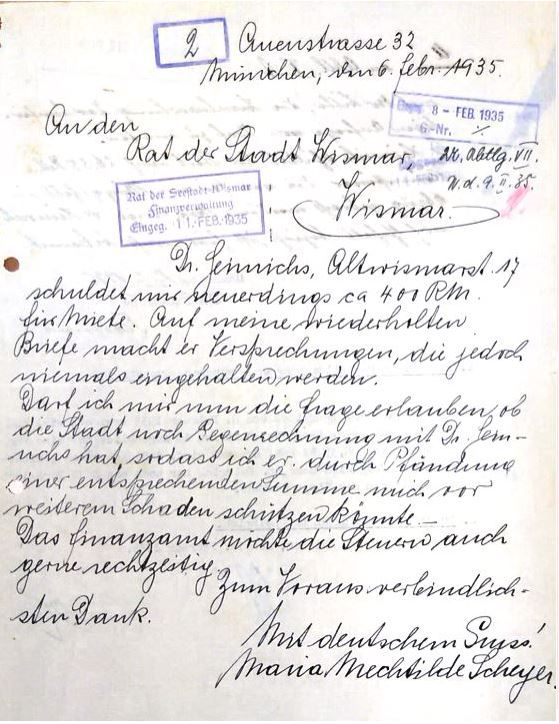 2
Auenstrasse 32
München, den 6. febr. 1935.
8 - FEB. 1935
G.-Nr.
An den
Rat der Stadt Wismar,
2k. Abtlg. VII.
W. d. 9. II. 35.
Wismar.
Rat der Seestadt Wismar
Finanzverwaltung
Eingeg. 11. FEB. 1935
Dr. Heinrichs, Altwismarst. 17
schuldet mir neuerdings ca 400 RM.
für Miete. Auf meine wiederholten
Briefe macht er Versprechungen, die jedoch
niemals eingehalten werden.
Darf ich mir nun die Frage erlauben, ob
die Stadt noch Gegenrechnung mit Dr. Hein-
richs hat, sodass ich ev. durch Pfändung
einer entsprechenden Summe mich vor
weiterem Schaden schützen könnte.—
Das Finanzamt möchte die Steuern auch
gerne rechtzeitig.
Zum Voraus verbindlich-
sten Dank.
Mit deutschem Gruss!
Maria Mechtilde Scheyer.